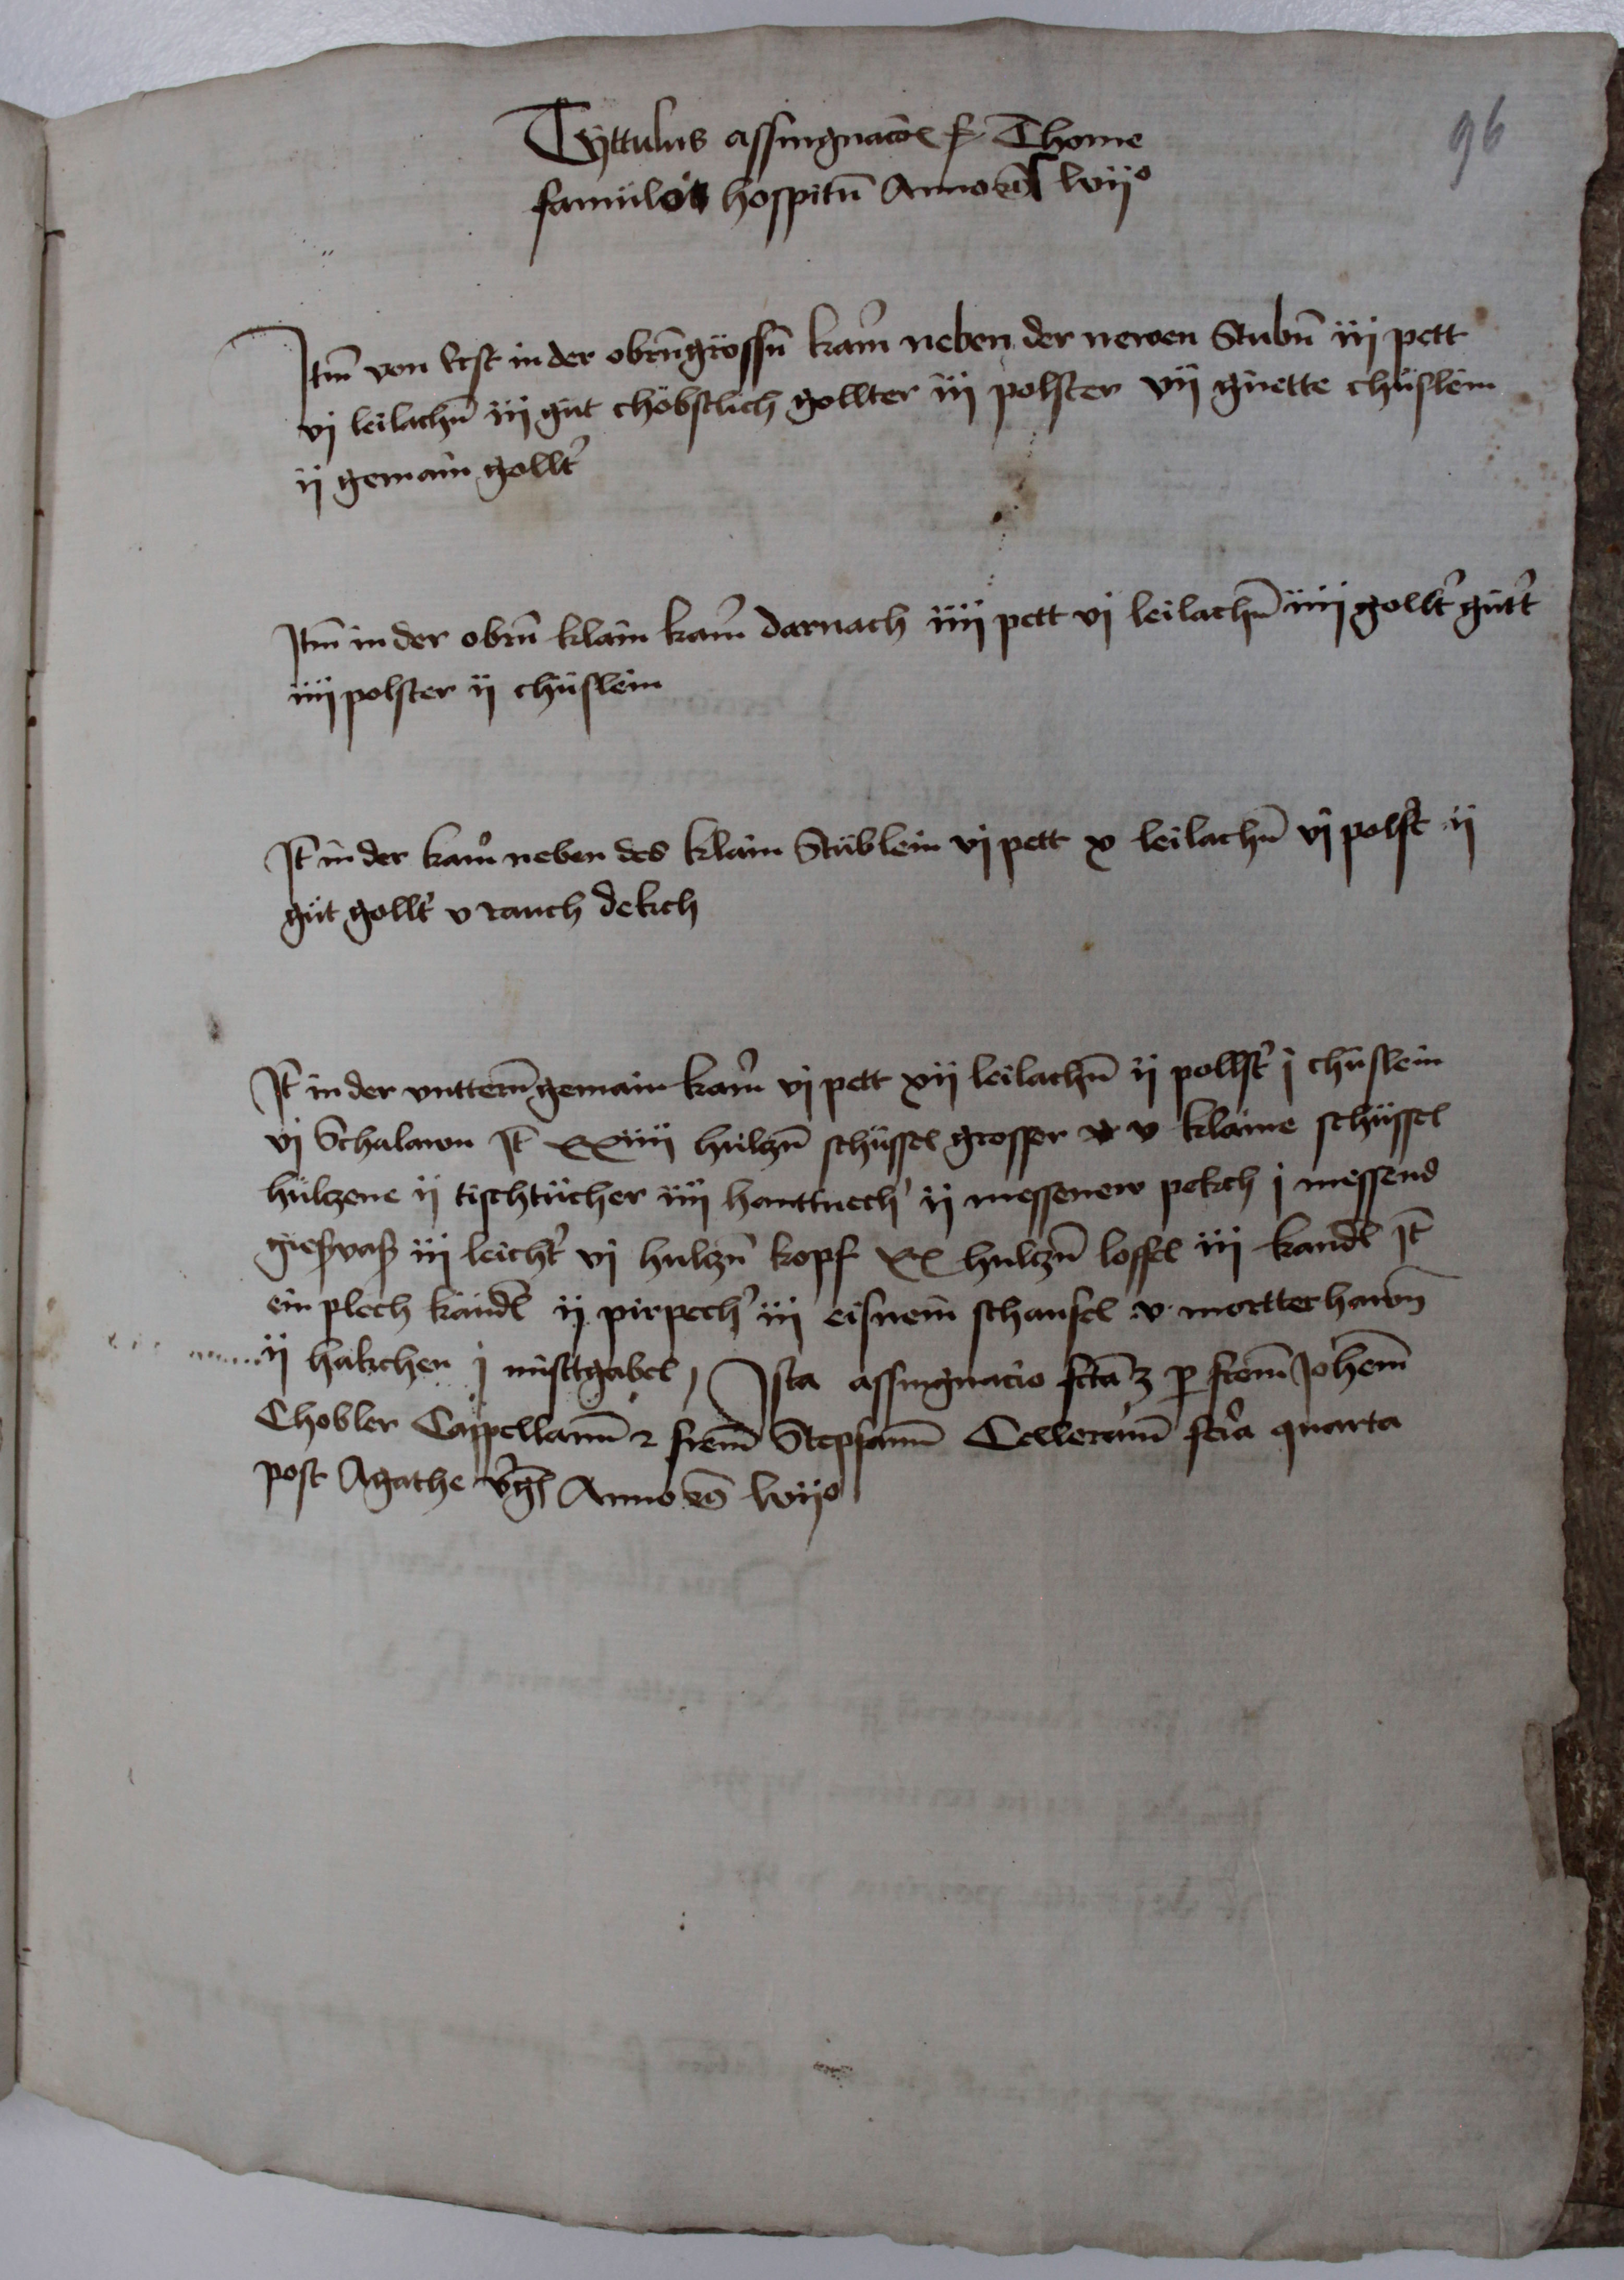 96
Tyttulus assingnacōe f Thome
famülois hospitū Anno &c̄ lvijº
Itm̄ von Erst in der obrn̄ grössn̄ kam̄ neben der newen Stubn̄ iij pett
vj leilachn̄ iij güt chöbstlich gollter iij polster vij guette chüslein
ij gemain gollt̉
Itm̄ in der obrn̄ klain kam̄ darnach iiij pett vj leilachn̄ iiij gollt̉ gütt̉
iiij polster ij chüslein
It̄ in der kam̉ neben des klain Stüblein vj pett x leilachn̄ vj polst̉ ij
güt gollt̉ v rauch dekch
It̄ in der vnttern̄ gemain kam̉ vj pett xij leilachn̄ ij pollst̉ j chüslein
vj Schalawn It̄ xxiiij hülczn̄ schüssel grosser v klaine schüssel
hülczene ij tischtücher iiij hanttuech̉ ij messenew pekch j messend
giesvas iij leicht̉ vj hulczn̄ kopf xx hulczn̄ loffel iij kandl It̄
ein plech kandl ij pirpech̉ iij eisnein schaufel v mortterhawn̄
ij hakchen j mistgabel / Ista assingnacio fctā ʒ p̱ frem̄ Johem̄
Chobler Cappellanū & frem̄ Stepfanū Cellerariū fer̉a quarta
post Agathe v̉gīs Anno &c̄ lvijº